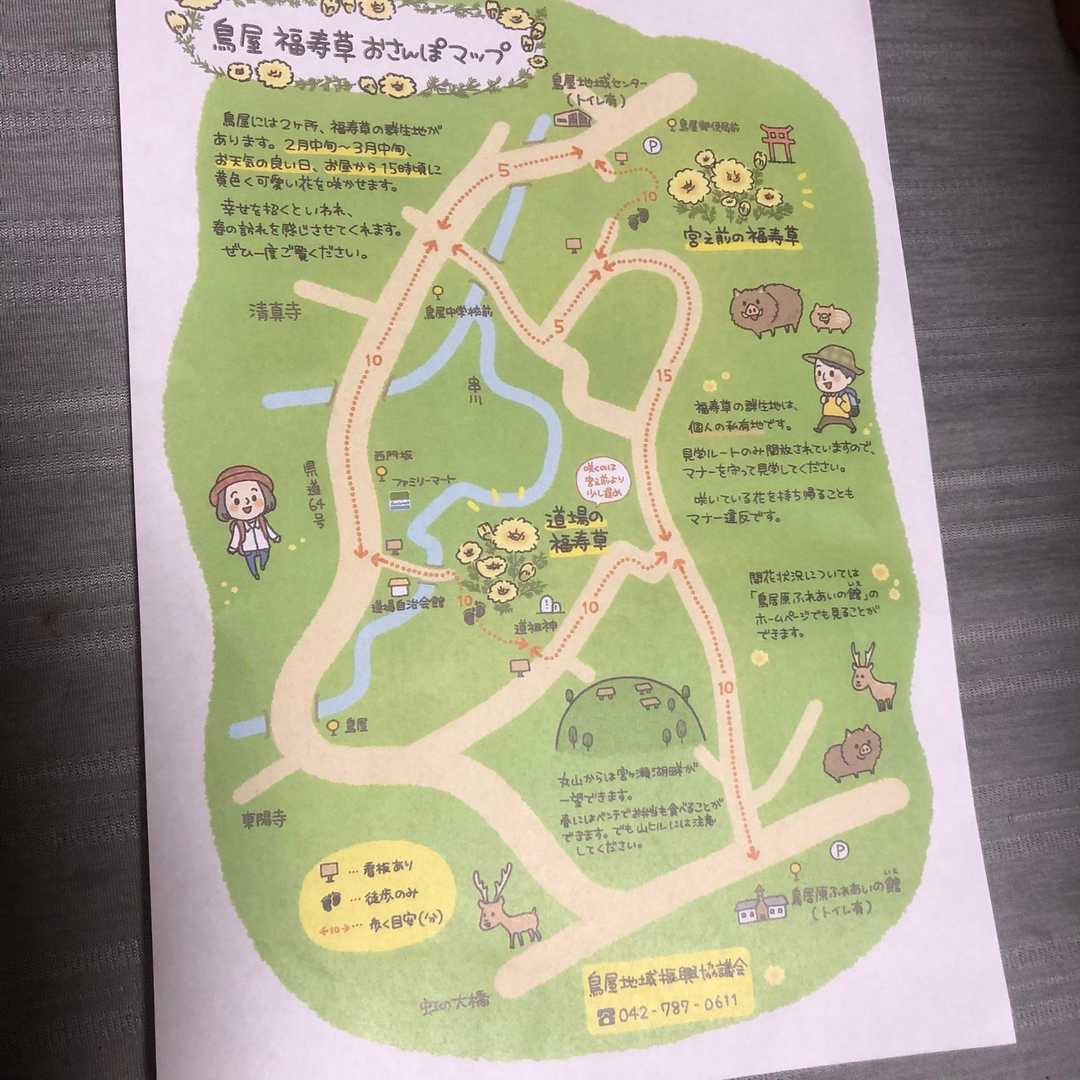 鳥屋 福寿草 おさんぽマップ
鳥屋には2ヶ所、福寿草の群生地が
あります。2月中旬〜3月中旬、
お天気の良い日、お昼から15時頃に
黄色く可愛い花を咲かせます。
幸せを招くといわれ、
春の訪れを感じさせてくれます。
ぜひ一度ご覧ください。
鳥屋地域センター
(トイレ有)
P
鳥屋郵便局前
5
10
宮ノ前の福寿草
清真寺
鳥屋中学校前
5
10
串川
15
福寿草の群生地は、
個人の私有地です。
見学ルートのみ開放されていますので、
マナーを守って見学してください。
咲いている花を持ち帰ることも
マナー違反です。
西門坂
ファミリーマート
県道64号
咲くのは
宮ノ前より
少し遅め
道場の
福寿草
道場自治会館
10
道祖神
10
開花状況については
「鳥居原ふれあいの館」の
いえ
ホームページでも見ることが
できます。
10
鳥屋
東陽寺
丸山からは宮ヶ瀬湖畔が
一望できます。
春にはベンチでお弁当も食べることが
できます。でも山ヒルには注意
してください。
…看板あり
…徒歩のみ
←10→…歩く目安(分)
P
鳥居原ふれあいの館
いえ
(トイレ有)
虹の大橋
鳥屋地域振興協議会
☎042-787-0611